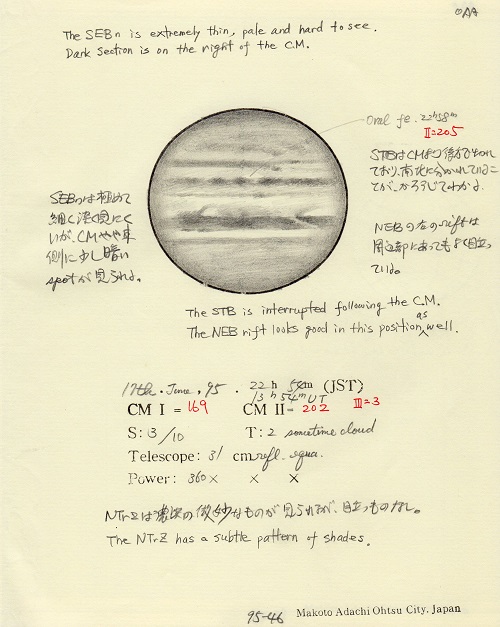 OAA
The SEBn is extremely thin, pale and hard to see.
Dark section is on the right of the C.M.
Oval fe. 22h58m
II=205
STBはCMより後方で
おり、南北に分かれている
とが、かろうじてわかる。
SEBnは極めて
細く淡く見にく
いが、CMやや東
側に少し暗い
spotが見られる。
NEBの左のriftは
周辺部にあってもよく目立っ
ている。
The STB is interrupted following the C.M.
The NEB rift looks good in this position as well.
17th. June, 95. 22h 54m (JST)
13h 54m UT
CM I = 169 CM II= 202 III=3
S: 3/10 T: 2 sometime cloud
Telescope: 31 cm refl. equa.
Power: 360× × ×
NTrZは濃淡の微妙なものが見られるが、目立つものなし。
The NTrZ has a subtle pattern of shades.
95-46 Makoto Adachi Ohtsu City, Japan